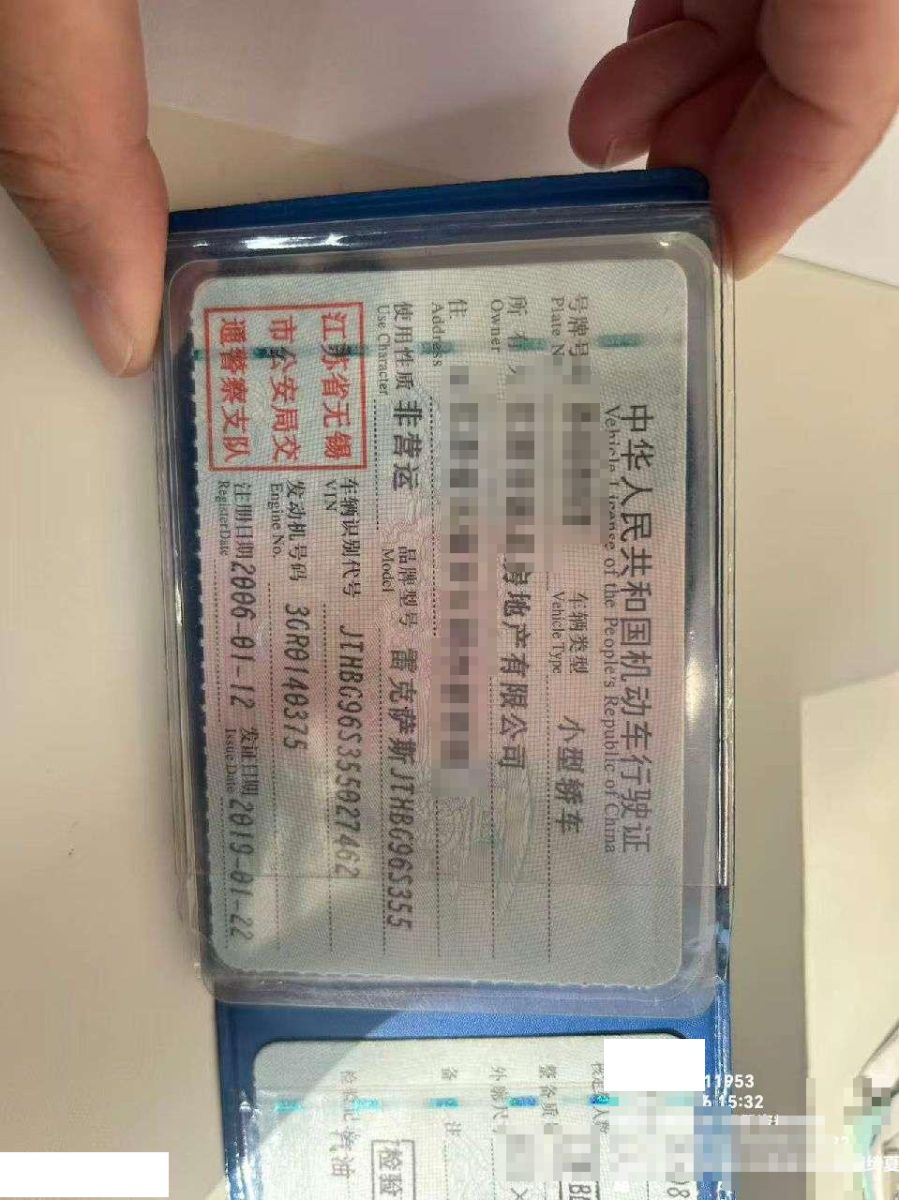 中华人民共和国机动车行驶证
Vehicle License of the People's Republic of China
号牌号 车辆类型 小型轿车
Plate N Vehicle Type
所有 房地产有限公司
Owner
住
Address
使用性质 非营运 品牌型号 雷克萨斯JTHBG96S355
Use Character Model
江苏省无锡
市公安局交
通警察支队
车辆识别代号 JTHBG96S355027462
VIN
发动机号码 3GR0140375
Engine No.
注册日期 2006-01-12 发证日期 2019-01-22
Register Date Issue Date
整备质
外廓尺
备 注
检验记 汽油
检验
11953
15:32